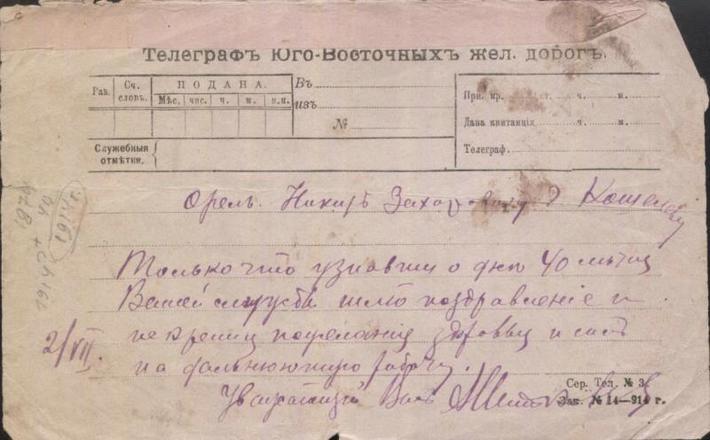 Телеграфъ Юго-Восточныхъ жел. дорогъ.
Раз. Сч. словъ. ПОДАНА. Въ
Мѣс. чис. ч. м. п.п. изъ
№
При. пр. ч. м.
Дана квитанція ч. м.
Телеграф.
Служебныя отмѣтки.
Орелъ Никитѣ Захаровичу Кошелеву
Только что узнавши о днѣ 40 лѣтия
Вашей службы шлю поздравление и
искрения пожелания здоровья и силъ
на дальнюю работу.
2/VII.
Уважающий Васъ
Сер. Тел. № 3.
Зак. № 14—914 г.